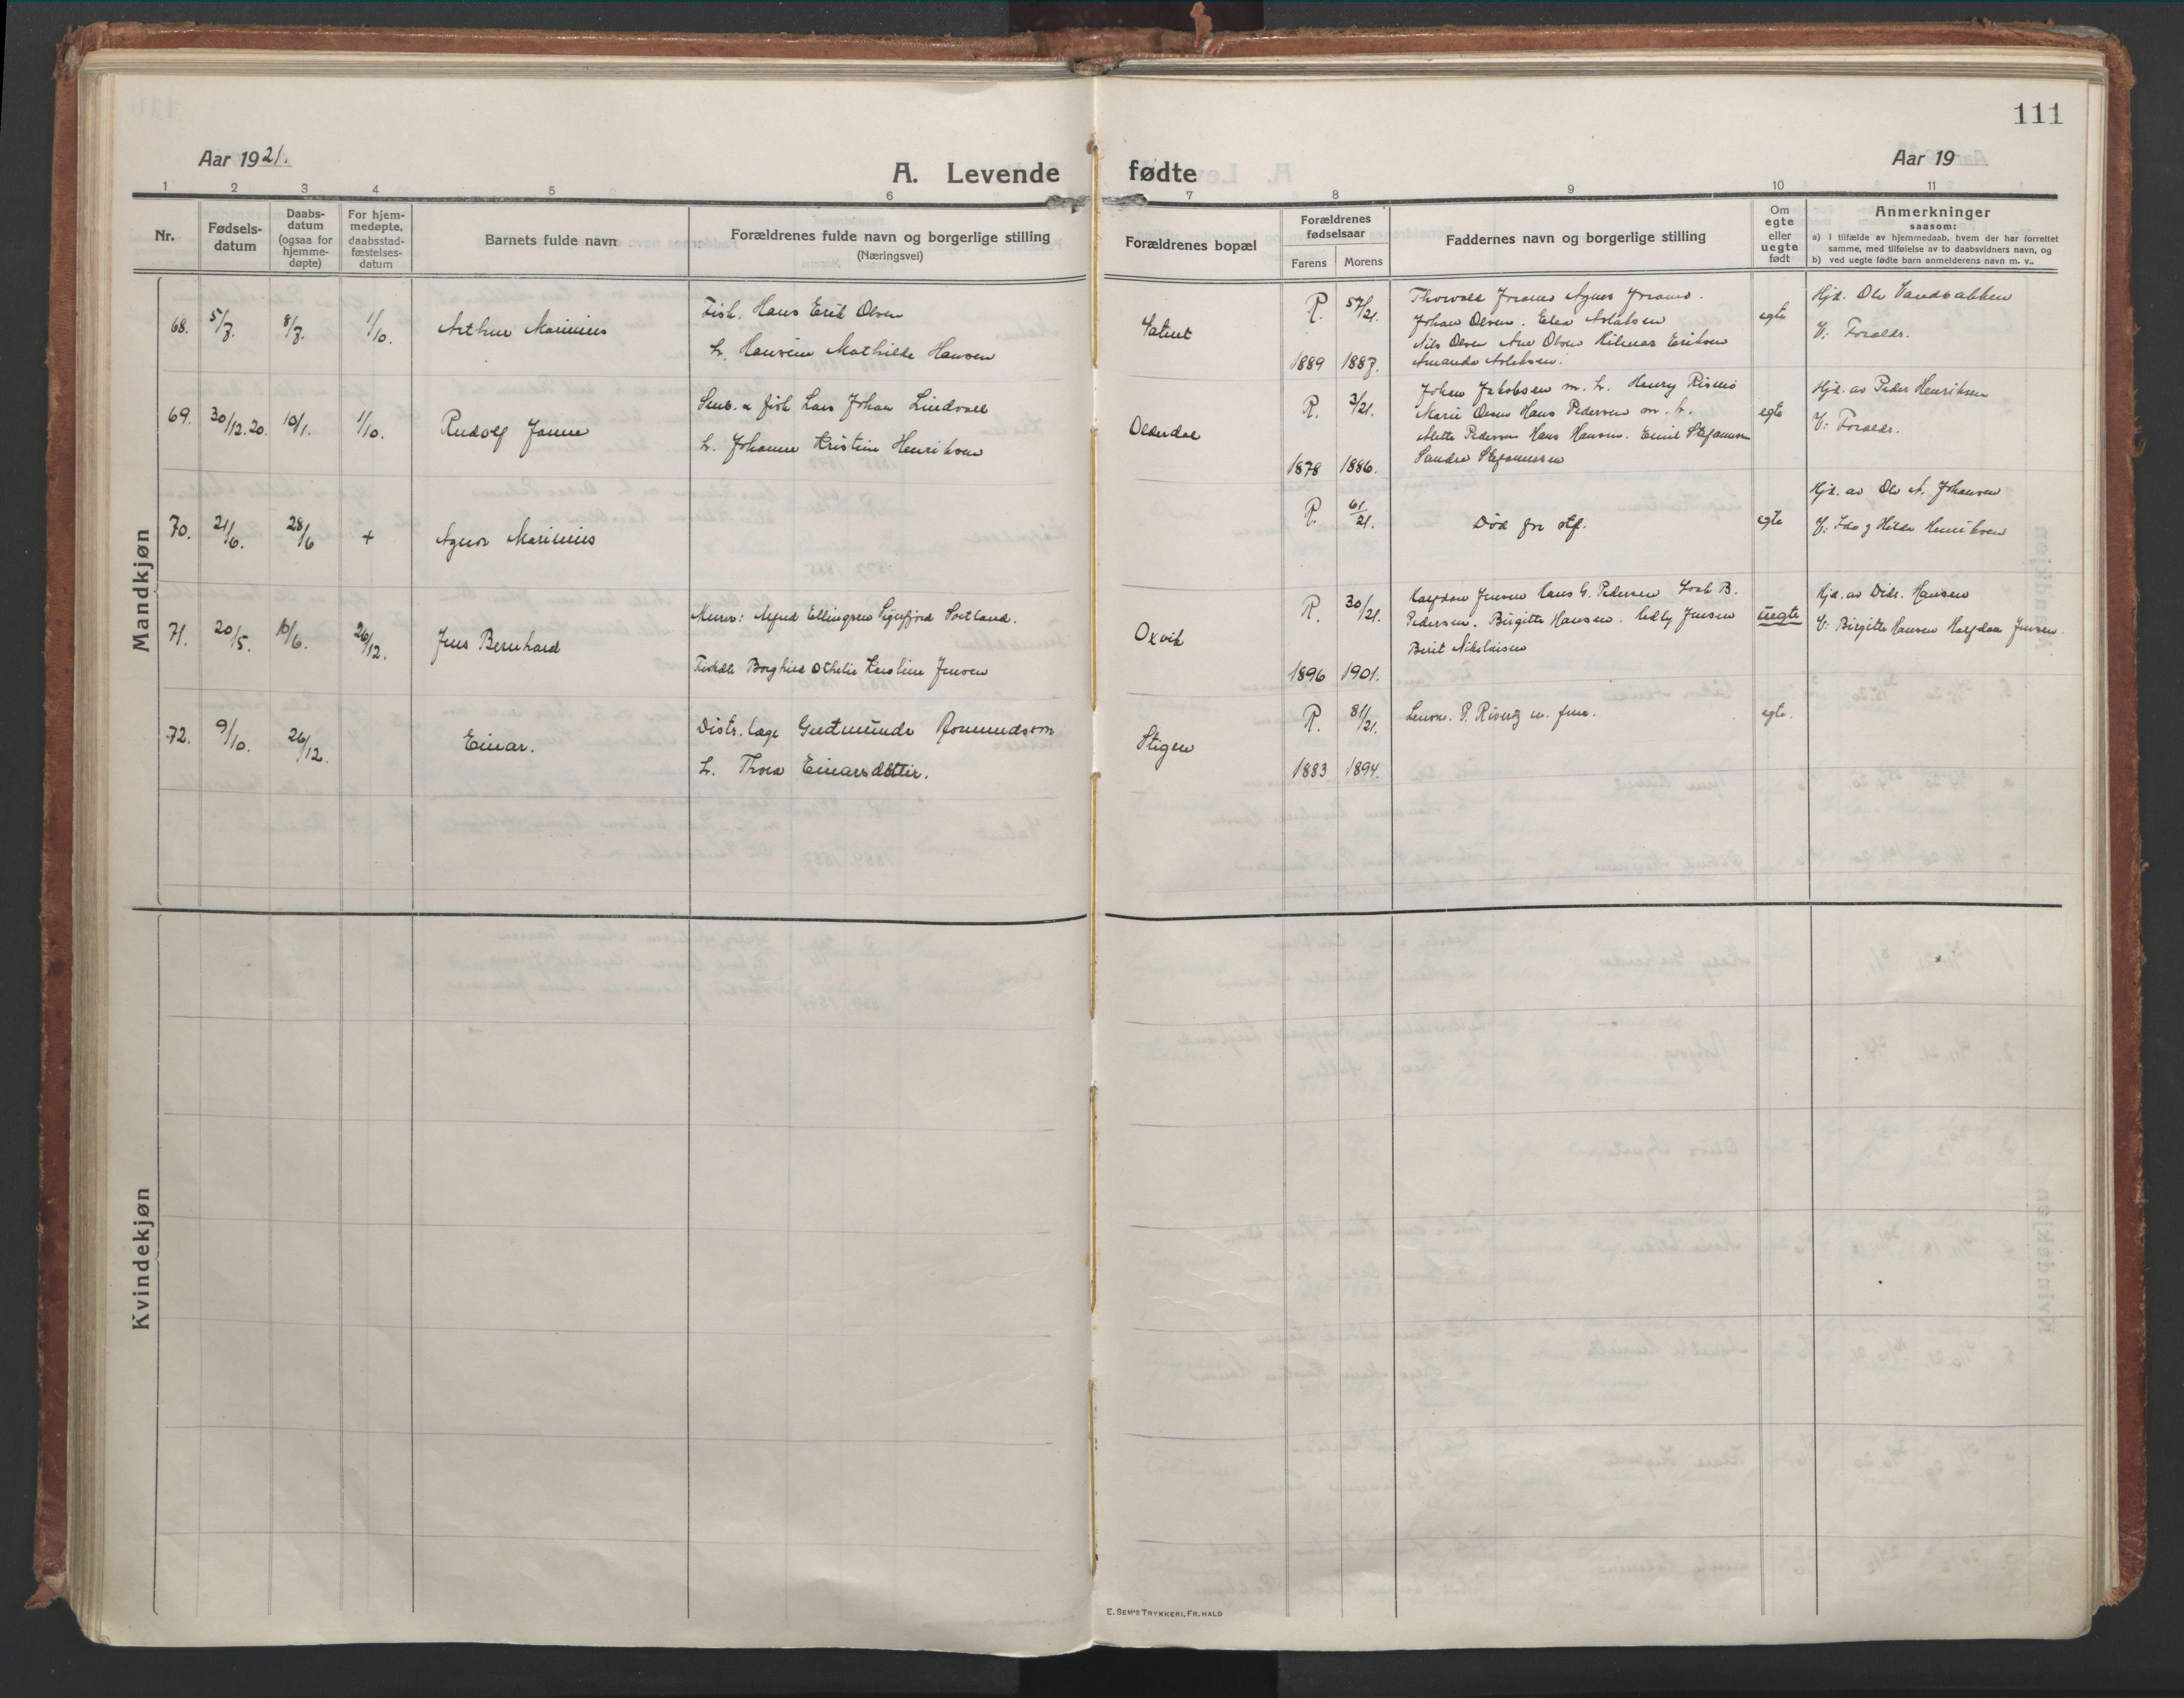 111
Aar 1921.
A. Levende fødte
Aar 19
1 2 3 4 5 6 7 8 9 10 11
Nr.
Fødsels-
datum
Daabs-
datum
(ogsaa for
hjemme-
døpte)
For hjem-
medøpte,
daabsstad-
fæstelses-
datum
Barnets fulde navn
Forældrenes fulde navn og borgerlige stilling
(Næringsvei)
Forældrenes bopæl
Forældrenes
fødselsaar
Farens Morens
Faddernes navn og borgerlige stilling
Om
egte
eller
uegte
født
Anmerkninger
saasom:
a) I tilfælde av hjemmedaab, hvem der har forrettet
samme, med tilføielse av to daabsvidners navn, og
b) ved uegte fødte barn anmelderens navn m. v..
Mandkjøn
68. 5/7. 8/7. 1/10. Arthur Marinius
Fisk. Hans Erik Olsen
h. Hansine Mathilde Hansen
R. 57/21.
1889 1887.
Johan Olsen.
Nils Olsen Ane Olsen Hilmar Eriksen
Amanda Aslaksen.
egte
Hjd. Ole Sandbakken
V: Foreldr.
69. 30/12.20. 10/1. 1/10. Rudolf Janne
Smb. & fisk Lars Johan Lindvall
h. Johanne Kristine Henriksen
Oldendal
R. 3/21.
1878 1886.
Johan Jakobsen m. h. Henry Rismo
Marie Olsen Hans Pedersen m. h.
Alette Pedersen Hans Hansen. Emil Stefanussen
Sandra Stefanussen
egte
Hjd. av Peder Henriksen
V: Foreldr.
70. 21/6. 28/6 + Agnor Marinius
R. 61/21.
Død før stf.
egte
Hjd. av Ole A. Johansen
V: Ida og Hilda Henriksen
71. 20/5. 10/6. 26/12. Jens Bernhard
Murer: Alfred Ellingsen Sigerfjord Sortland.
Borghild Othelie Karoline Jensen
Oxvik
R. 30/21.
1896 1901.
Halfdan Jensen Hans G. Pedersen B.
Pedersen. Birgitte Hansen. Jensen
Berit Nikolaisen
uegte
Hjd. av Didr. Hansen
V: Birgitte Hansen Halfdan Jensen.
72. 9/10. 26/12. Einar.
Distr. læge Gudmunde Asmundsson
h. Thora Einarsdottir.
Stigen
R. 81/21.
1883 1894.
Lensm. P. Rivertz m. frue.
egte.
Kvindekjøn
E. SEM'S TRYKKERI, FR. HALD